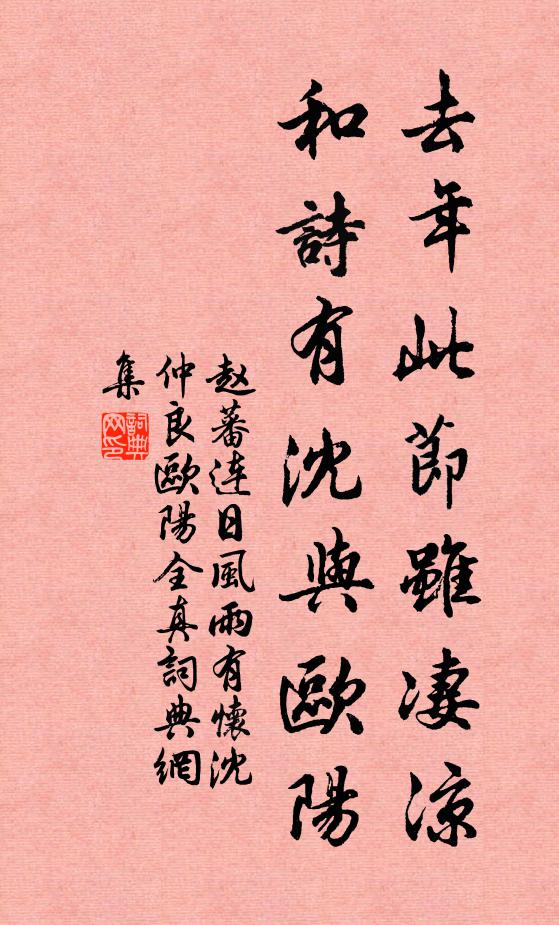 去年此節雖凄涼
和詩有沈與歐陽
赵蕃連日風雨有懷沈
仲良歐陽全真詞典網
集
詞典
网印